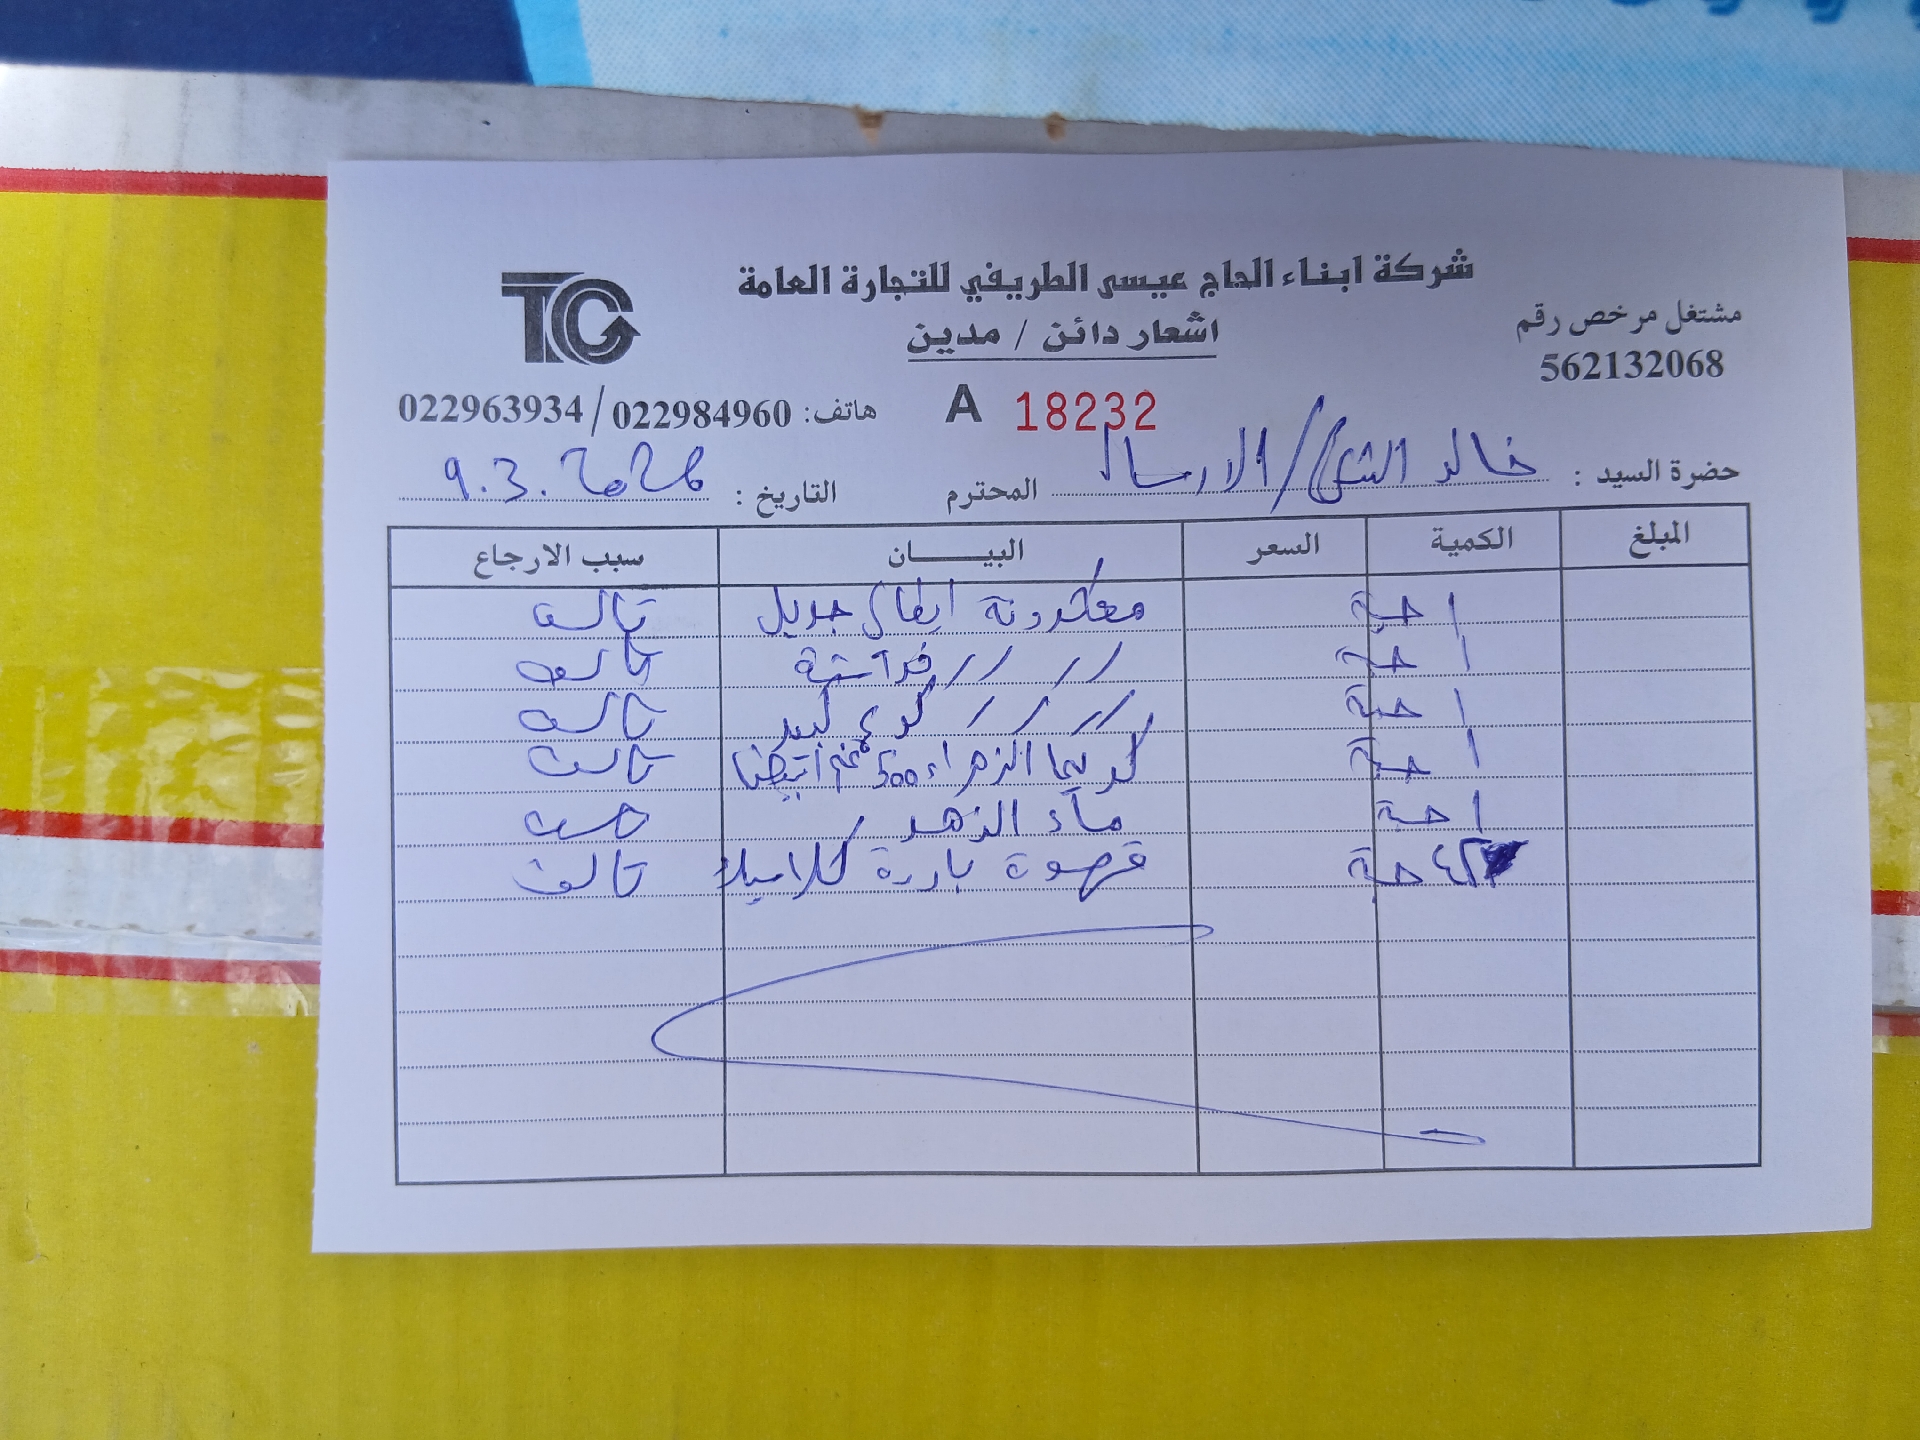 شركة ابناء الحاج عيسى الطريفي للتجارة العامة
اشعار دائن / مدين
مشتغل مرخص رقم
562132068
TC
هاتف: 022963934/022984960
A 18232
حضرة السيد : خالد / الارسال المحترم
التاريخ : 9.3.2026
المبلغ الكمية السعر البيـــــان سبب الارجاع
1 حبة معكرونة جديل تالف
1 حبة // // فراشة تالف
1 حبة // // // تالف
1 حبة الزهراء 500 غم تالف
1 حبة ماء الزهر
حبة قهوة باردة كلاميلا تالف